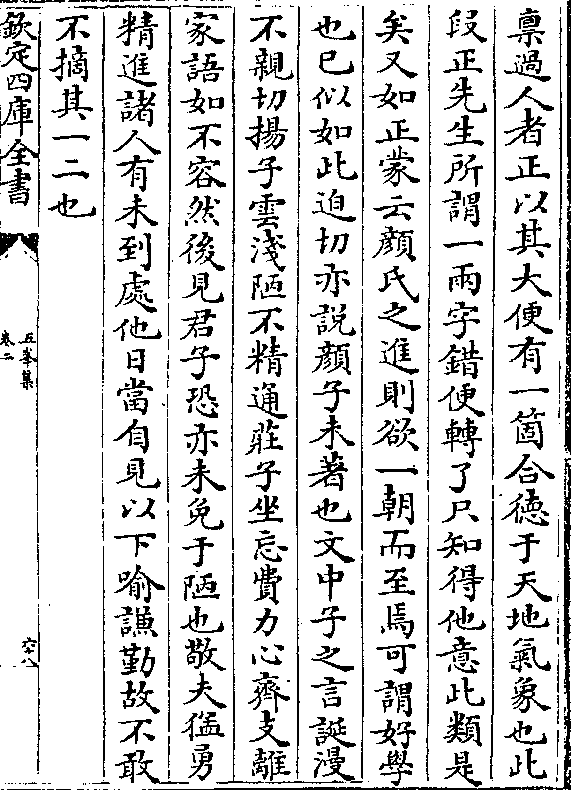 禀過人者正以其大便有一箇合徳于天地氣象也此
段正先生所謂一兩字錯便轉了只知得他意此類是
矣又如正蒙云顔氏之進則欲一朝而至焉可謂好學
也已似如此迫切亦説顔子未著也文中子之言誕漫
不親切揚子雲淺陋不精通莊子坐忘費力心齊支離
家語如不容然後見君子恐亦未免于陋也敬夫猛勇
精進諸人有未到處他日當自見以下喻謙勤故不敢
不摘其一二也
欽定四庫全書
五峯集
卷二
六八